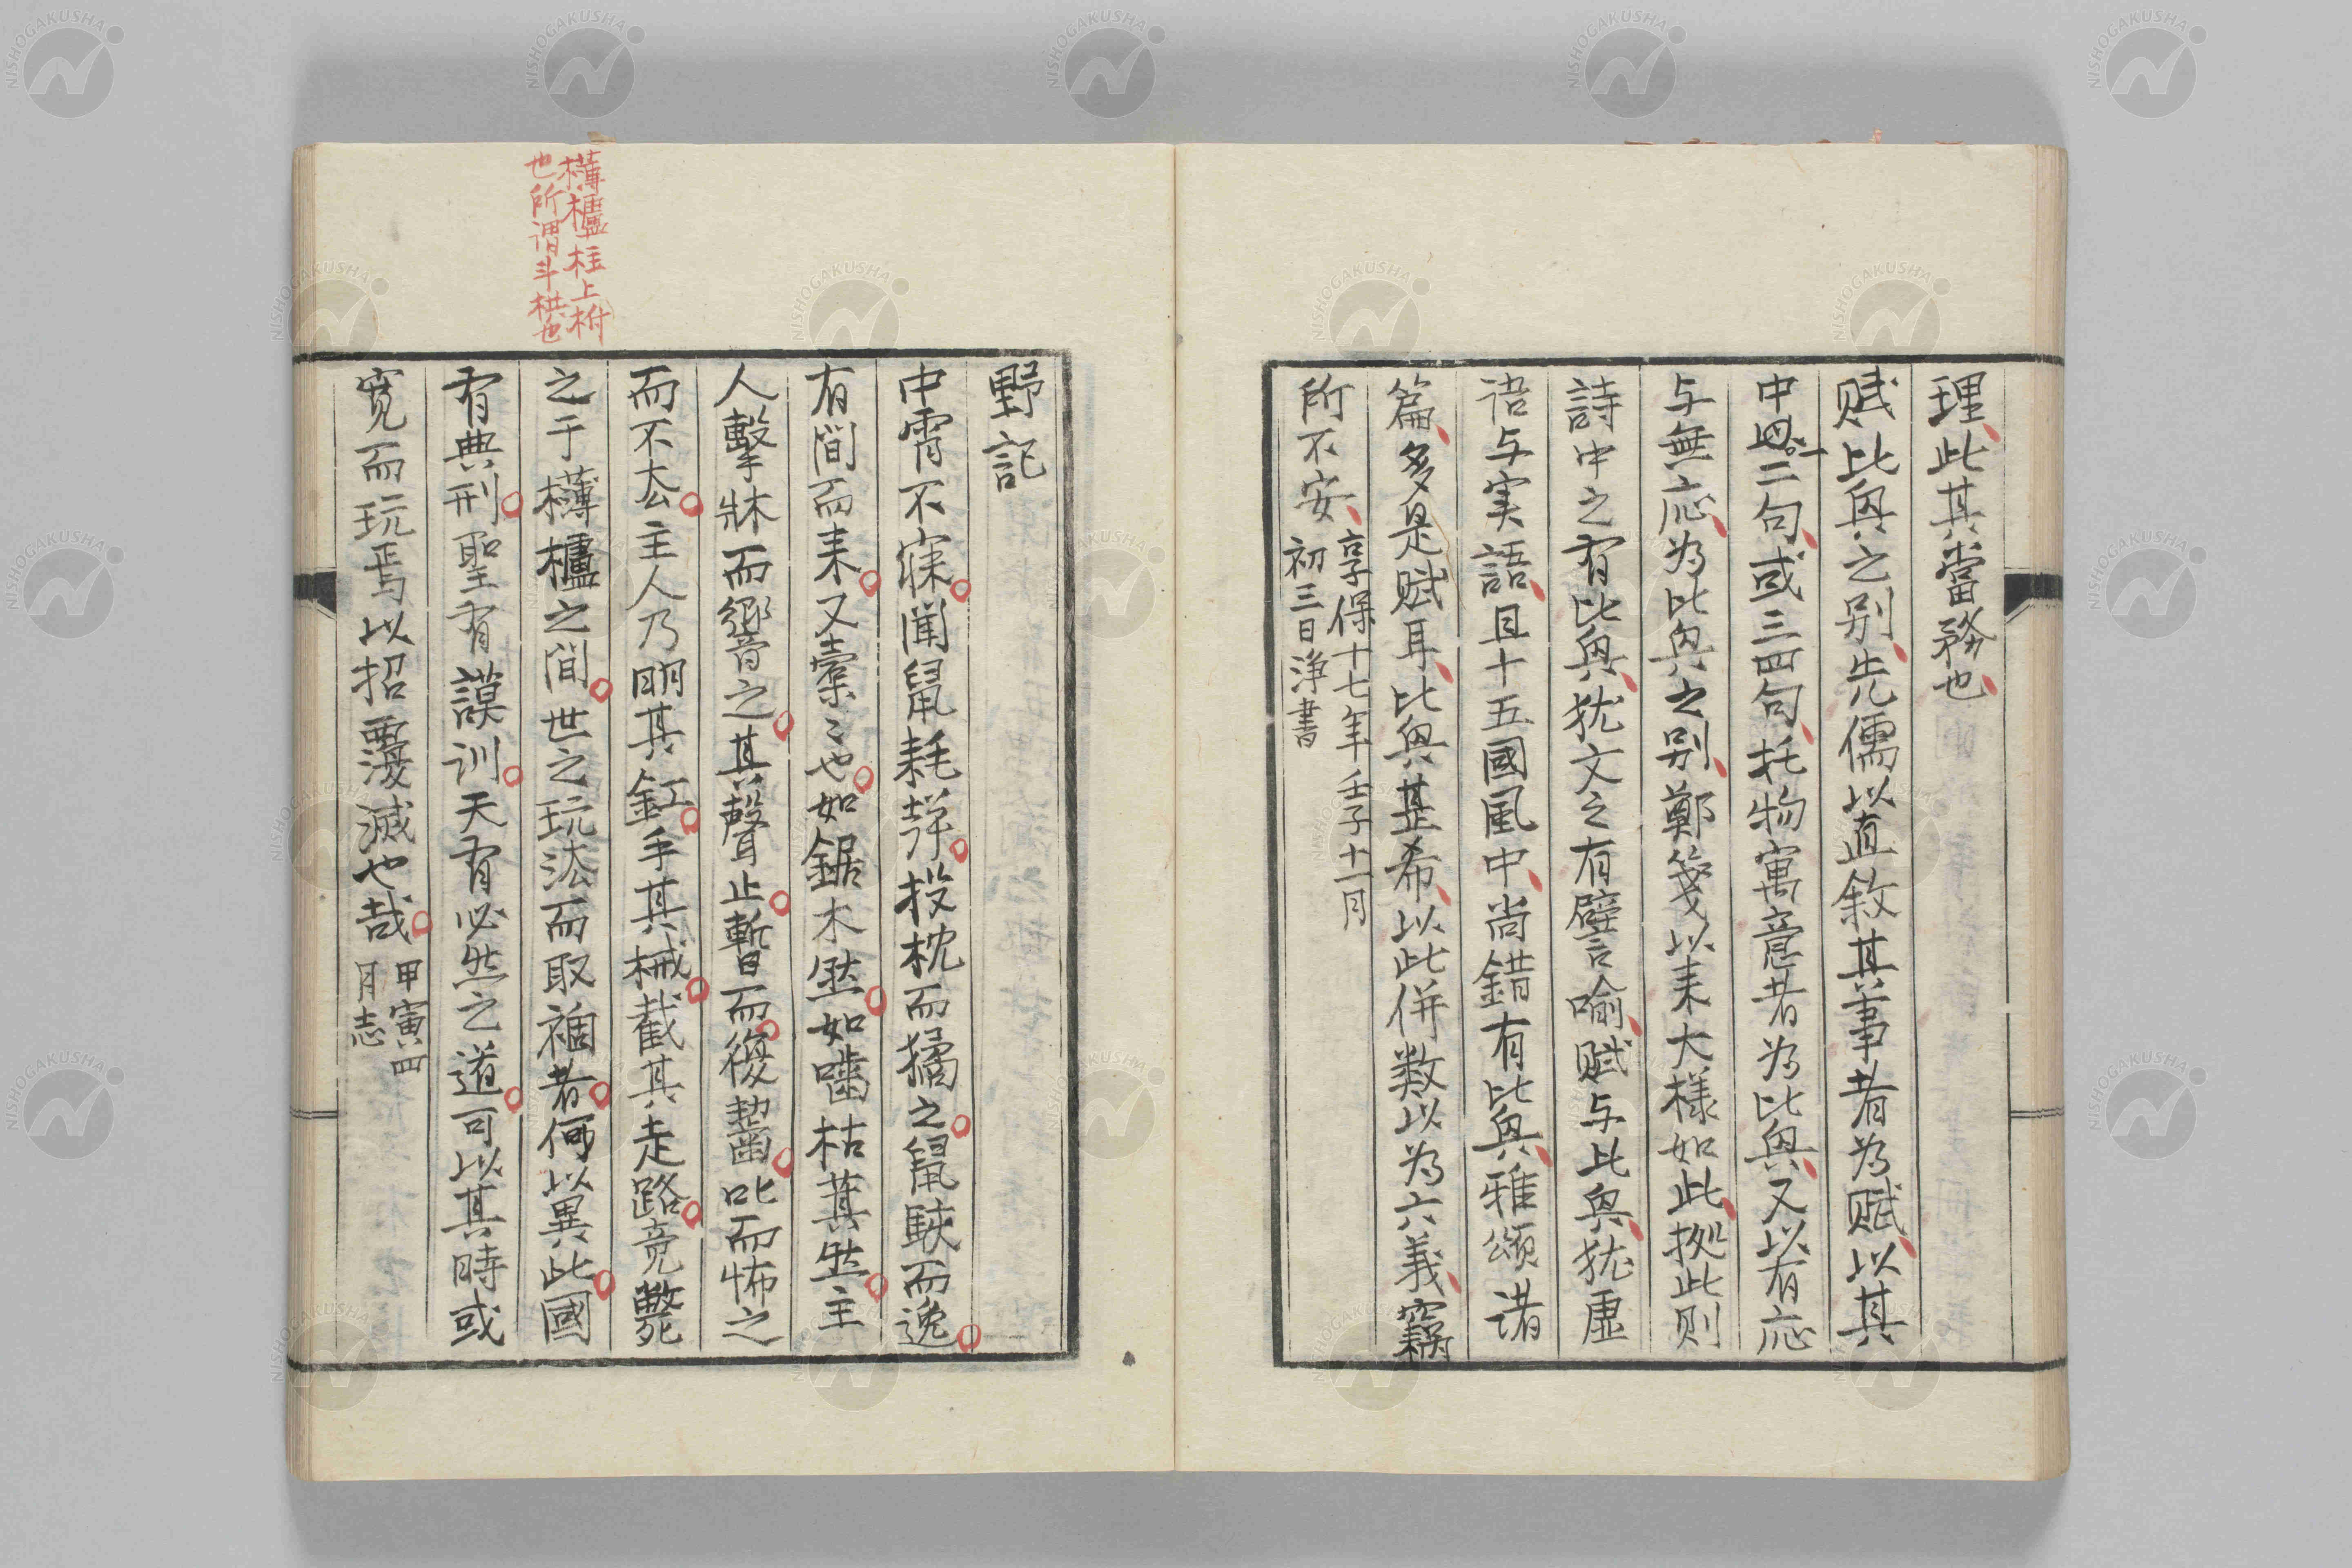 理此其當務也
賦比與之别先儒以直敘其事者為賦以其
中一二句或三四句托物寓意者為比與又以有応
与無応為比與之别鄭箋以来大樣如此拠此則
詩中之有比與犹文之有譬喻賦与比與犹虛
语与実語且十五國風中尚錯有比與雅頌诸
篇多是賦耳比與甚希以此併数以為六義竊
所不安
享保十七年壬子十一月
初三日浄書
野記
中霄不寐聞鼠耗聲投枕而獝之鼠駃而逸
有間而来又橐〻也如鋸木然如嚙枯萁然主
人擊牀而響之其聲止暫而後齧叱而怖之
而不厺主人乃明其釭手其械截其走路竟斃
之于欂櫨之間世之玩法而取禍者何以異此國
有典刑聖有謨训天有必然之道可以其時或
寬而玩焉以招覆滅也哉
甲寅四
月志
欂櫨柱上柎
也所谓斗栱也
NISHOGAKUSHA